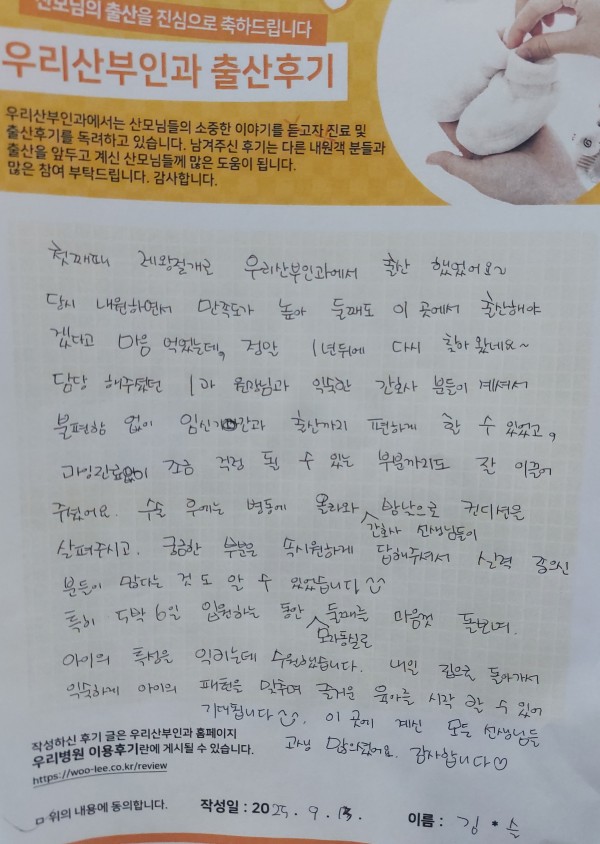 산모님의 출산을 진심으로 축하드립니다
우리산부인과 출산후기
우리산부인과에서는 산모님들의 소중한 이야기를 듣고자 진료 및
출산후기를 독려하고 있습니다. 남겨주신 후기는 다른 내원객 분들과
출산을 앞두고 계신 산모님들께 많은 도움이 됩니다.
많은 참여 부탁드립니다. 감사합니다.
첫째때 제왕절개로 우리산부인과에서 출산 했었어요~
당시 내원하면서 만족도가 높아 둘째도 이 곳에서 출산해야
겠다고 마음 먹었는데, 정말 1년뒤에 다시 찾아 왔네요~
담당 해주셨던 1과 원장님과 익숙한 간호사 분들이 계셔서
불편함 없이 임신기간과 출산까지 편하게 할 수 있었고,
과잉진료없이 조금 걱정 될 수 있는 부분까지도 잘 이끌어
주셨어요. 수술 후에는 병동에 올라와 밤낮으로 컨디션을
간호사 선생님들이
살펴주시고. 궁금한 부분을 속시원하게 답해주셔서 실력 좋으신
분들이 많다는 것 도 알 수 있었습니다
특히 5박 6일 입원하는 동안 둘째를 마음껏 돌보며.
모자동실로
아이의 특성을 익히는데 수월했습니다. 내일 집으로 돌아가서
익숙하게 아이의 패턴을 맞추며 즐거운 육아를 시작 할 수 있어
기대됩니다. 이 곳에 계신 모든 선생님들
고생 많으셨어요. 감사합니다♡
작성하신 후기 글은 우리산부인과 홈페이지
우리병원 이용후기란에 게시될 수 있습니다.
https://woo-lee.co.kr/review
□ 위의 내용에 동의합니다. 작성일 : 2025. 9. 13. 이름 : 김 * 슬